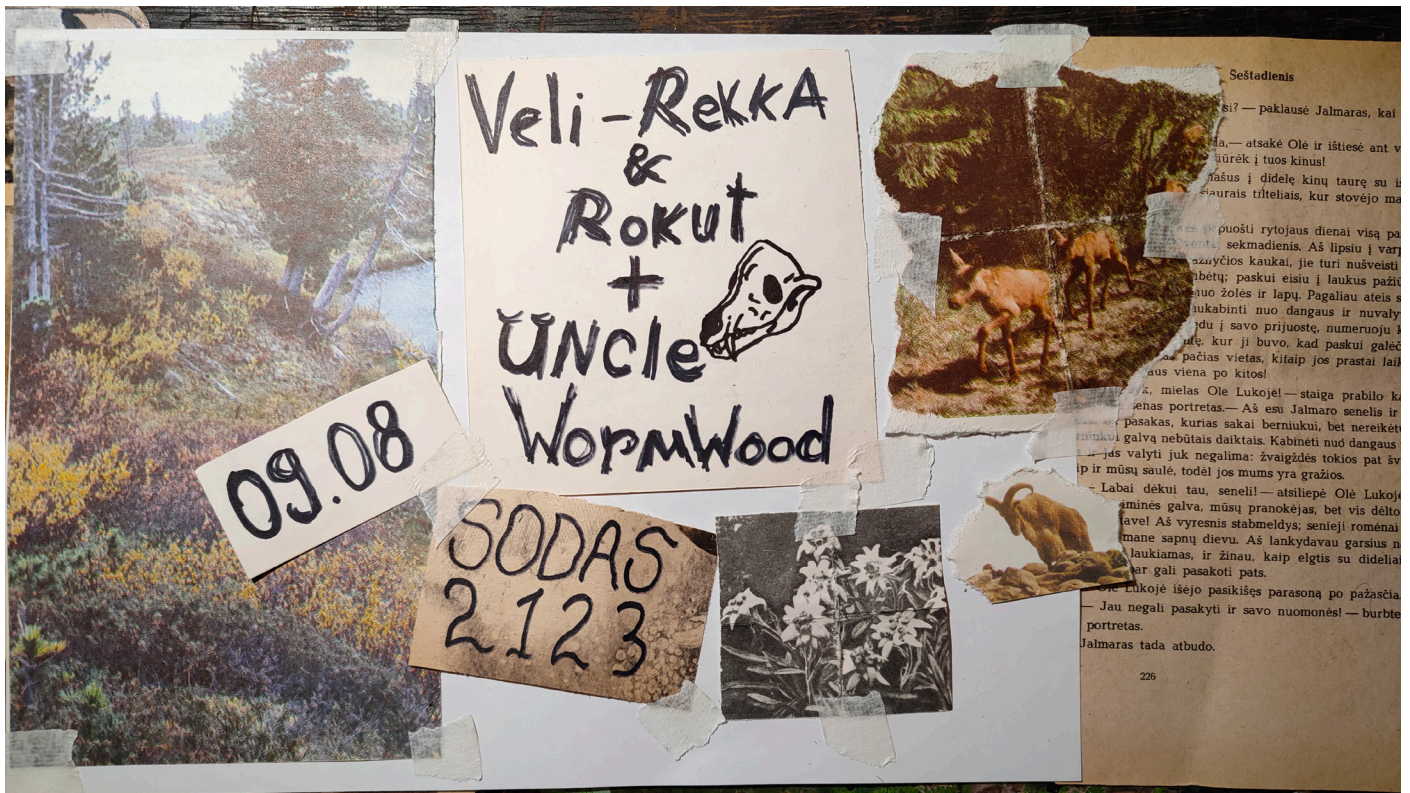 Veli-Rekka
&
Rokut
+
Uncle
Wormwood
09.08
SODAS
2123
Šeštadienis
si? — paklausė Jalmaras, kai
da,— atsakė Olė ir ištiesė ant v
iūrėk į tuos kinus!
našus į didelę kinų taurę su iš
siaurais tilteliais, kur stovėjo ma
puošti rytojaus dienai visą pa
sekmadienis. Aš lipsiu į varp
ažnyčios kaukai, jie turi nušveisti
mbėtų; paskui eisiu į laukus pažiū
nuo žolės ir lapų. Pagaliau ateis s
ukabinti nuo dangaus ir nuvaly
du į savo prijuostę, numeruoju k
tę, kur ji buvo, kad paskui galėč
pačias vietas, kitaip jos prastai laik
aus viena po kitos!
yk, mielas Ole Lukoje! — staiga prabilo ka
senas portretas.— Aš esu Jalmaro senelis ir
pasakas, kurias sakai berniukui, bet nereikėtų
rniukui galvą nebūtais daiktais. Kabinėti nuo dangaus
ir jas valyti juk negalima: žvaigždės tokios pat šv
ip ir mūsų saulė, todėl jos mums yra gražios.
— Labai dėkui tau, seneli! — atsiliepė Olė Lukoje
aminės galva, mūsų pranokėjas, bet vis dėlto
tave! Aš vyresnis stabmeldys; senieji romėnai
mane sapnų dievu. Aš lankydavau garsius n
laukiamas, ir žinau, kaip elgtis su dideliai
ar gali pasakoti pats.
Olė Lukojė išėjo pasikišęs parasoną po pažasčia.
— Jau negali pasakyti ir savo nuomonės! — burbte
portretas.
Jalmaras tada atbudo.
226